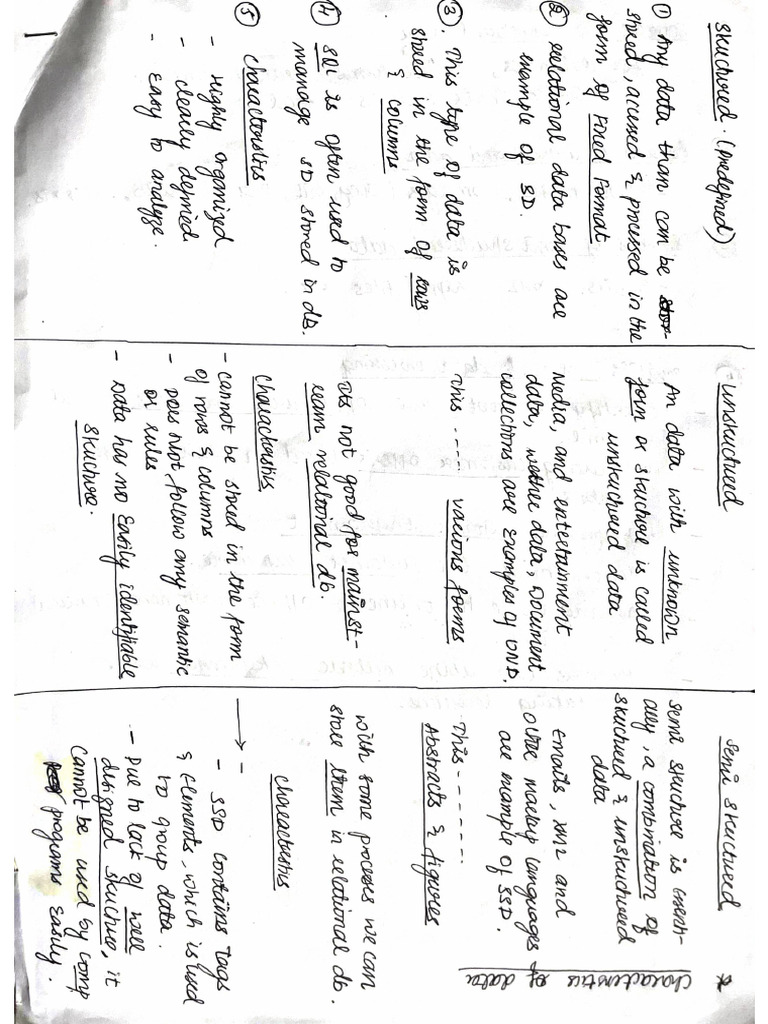 * characteristics of data
Structured. (Predefined)
① Any data than can be stor-
stored, accessed & processed in the
form of Fixed Format
② Relational data bases are
example of SD.
③ . This type of data is
stored in the form of rows
& columns
④ SQL is often used to
manage SD stored in db.
⑤ Characteristics
- Highly organized
- clearly defined
- Easy to analyze.
Unstructured
An data with unknown
form or structure is called
unstructured data
Media, and entertainment
data, wether data, Document
collections are examples of UND.
This ----- various forms
Its not good for mainst-
ream relational db.
Characteristics
- cannot be stored in the form
of rows & columns
- Does Not follow any semantic
or rules
- Data has no Easily identifiable
structure.
Semi structured
Semi structure is
ally, a combination of
structured & unstructured
data
Emails, XML and
other markup languages
are example of SSD.
This -------
Abstracts & figures
with some process we can
store them in relational db.
Characteristics
→ -
- SSD contains Tags
& Elements, which is used
to group data.
- Due to lack of well
designed structure, it
cannot be used by comp
programs Easily.